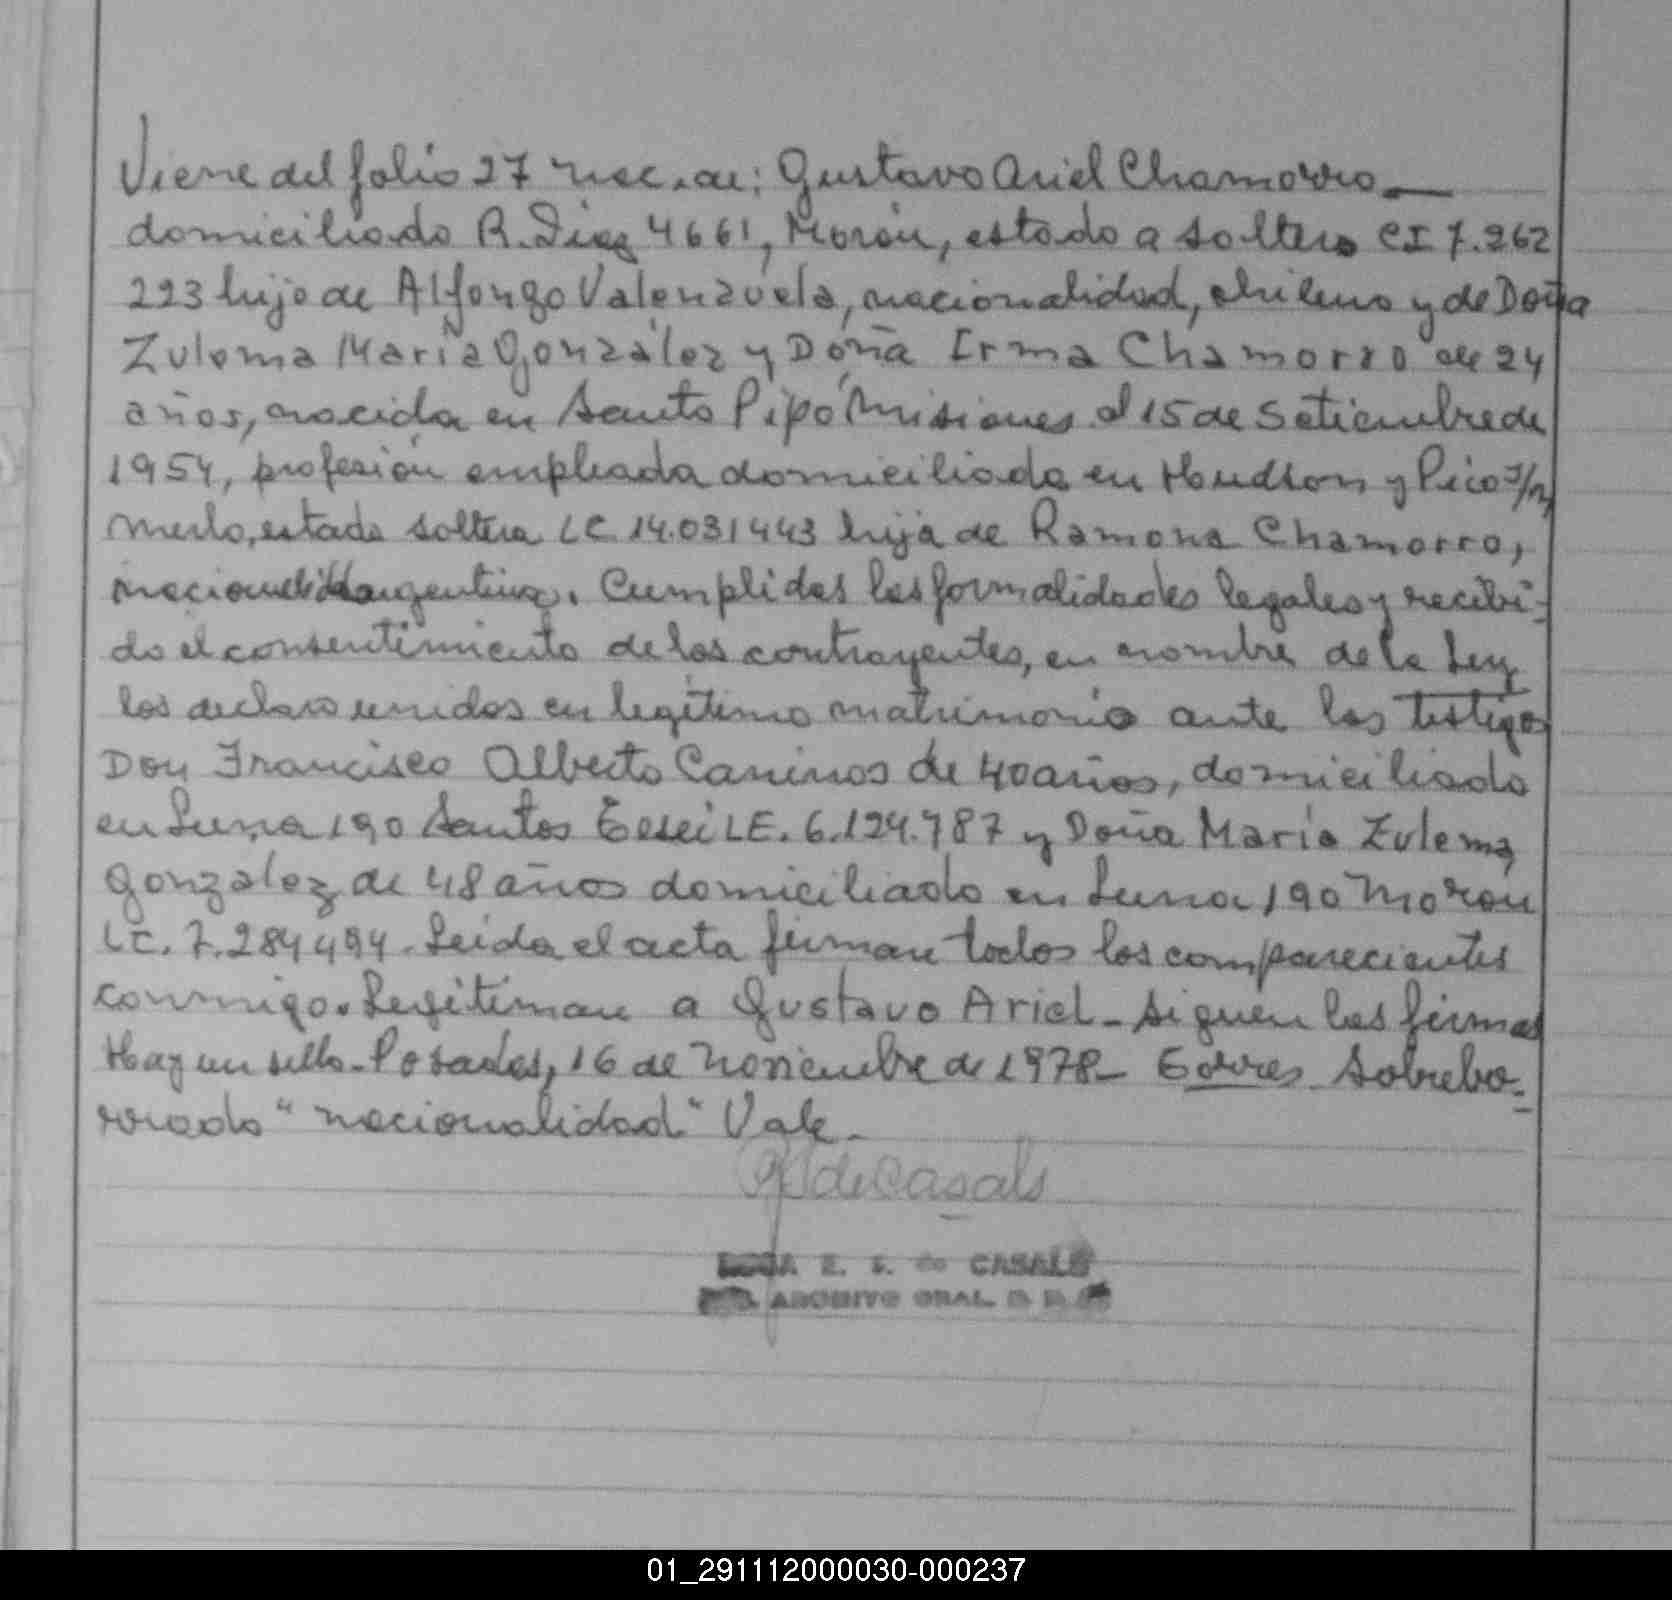 Viene del folio 27 nac. de: Gustavo Ariel Chamorro
domiciliado R. Diaz 4661, Morón, estado a soltero CI 7.262
223 hijo de Alfonzo Valenzuela, nacionalidad, chileno y de Doña
Zulema María González y Doña Irma Chamorro de 24
años, nacida en Santo Pipó Misiones el 15 de Setiembre de
1954, profesión empleada domiciliada en Hudson y Pico s/n,
Merlo, estado soltera LC 14.031443 hija de Ramona Chamorro,
nacionalidad argentina. Cumplidas las formalidades legales y recibi-
do el consentimiento de los contrayentes, en nombre de la Ley
los declaro unidos en legítimo matrimonio ante los testigos
Don Francisco Alberto Caminos de 40 años, domiciliado
en Luna 190 Santos Tesei LE. 6.124.787 y Doña María Zulema
González de 48 años domiciliado en Luna 190 Morón
LC. 7.284494. Leída el acta firman todos los comparecientes
conmigo. Legitiman a Gustavo Ariel - Siguen las firmas
Hay un sello - Posadas, 16 de Noviembre de 1978 - Sobrebo-
rrado "nacionalidad" Vale.
de Casals
E. de CASALS
ARCHIVO GRAL.
01_291112000030-000237